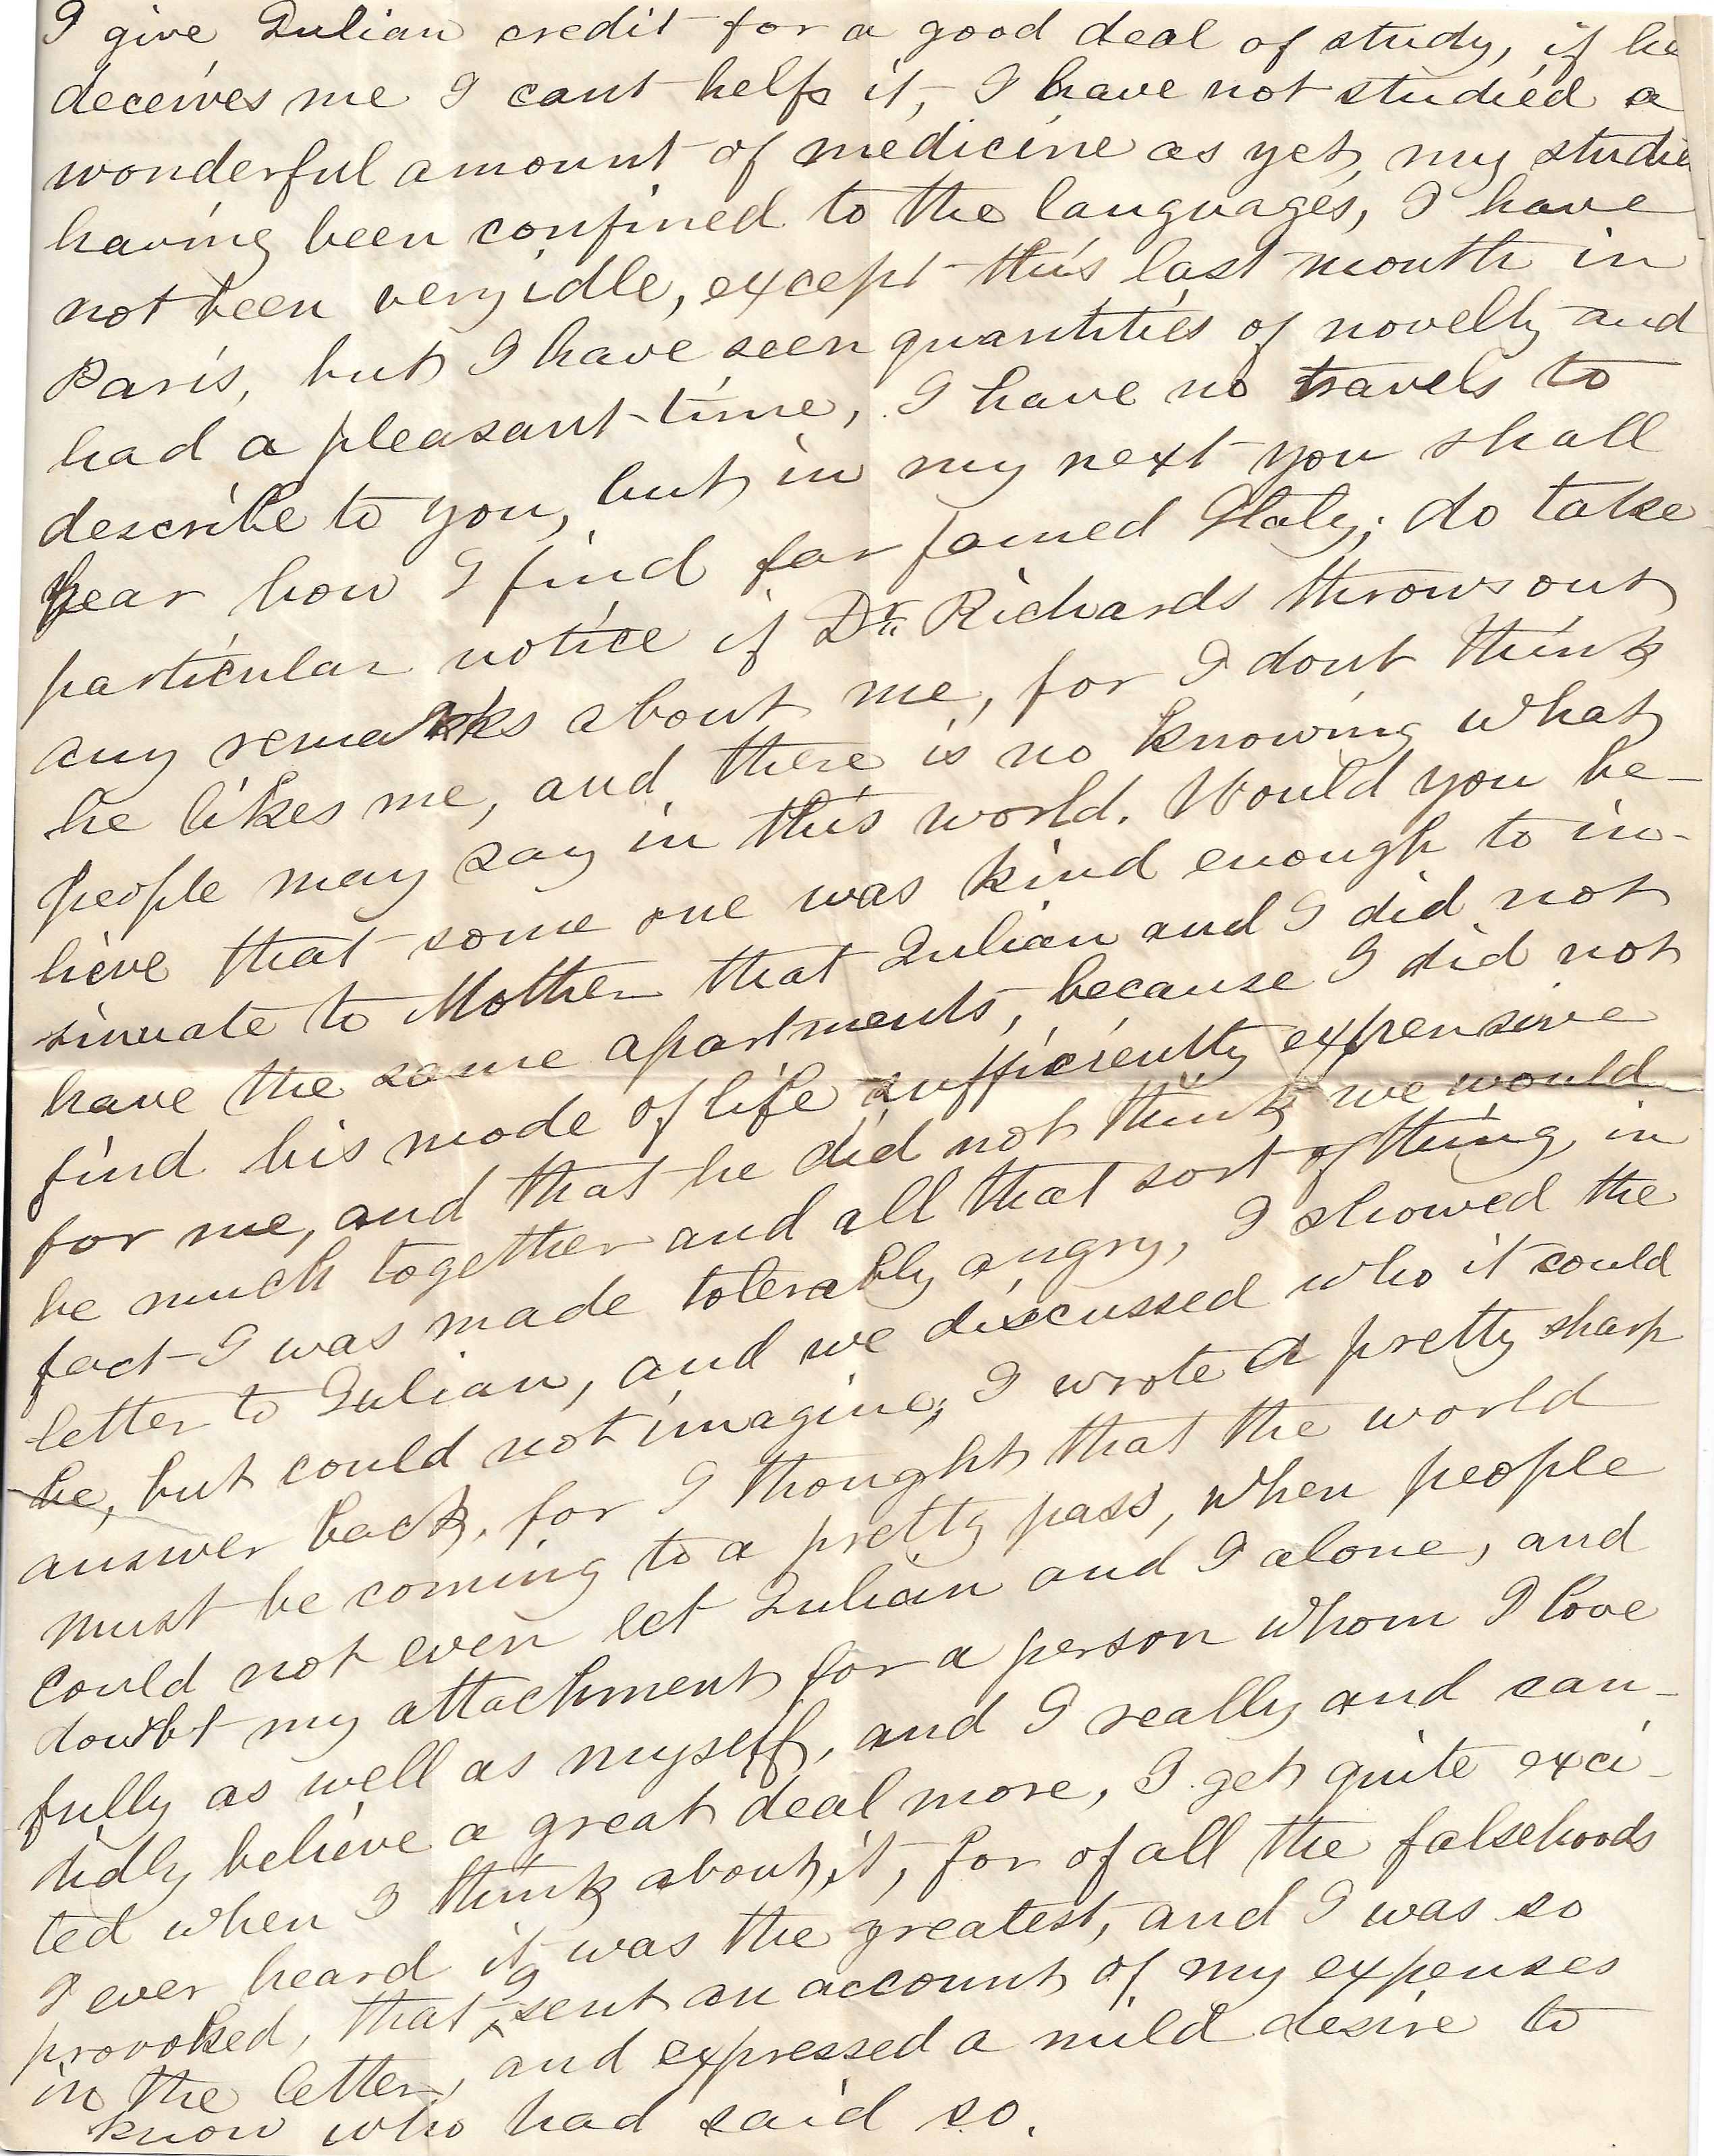 I give Julian credit for a good deal of study, if he
deceives me I cant help it, I have not studied a
wonderful amount of medicine as yet, my studie
having been confined to the languages, I have
not been very idle, except this last month in
Paris, but I have seen quantities of novelty and
had a pleasant time, I have no travels to
describe to you, but in my next you shall
hear how I find far famed Italy; do take
particular notice if Dr. Richards throws out
any remarks about me, for I dont think
he likes me, and there is no knowing what
people may say in this world. Would you be-
lieve that some one was kind enough to in-
sinuate to Mother that Julian and I did not
have the same apartments, because I did not
find his mode of life sufficiently expensive
for me, and that he did not think we would
be much together and all that sort of thing, in
fact I was made tolerably angry, I showed the
letter to Julian, and we discussed who it could
be, but could not imagine; I wrote a pretty sharp
answer back, for I thought that the world
must be coming to a pretty pass, when people
could not even let Julian and I alone, and
doubt my attachment for a person whom I love
fully as well as myself, and I really and can-
didly believe a great deal more, I get quite exci-
ted when I think about it, for of all the falsehoods
I ever heard it was the greatest, and I was so
provoked, that I sent an account of my expenses
in the letter, and expressed a mild desire to
know who had said so.